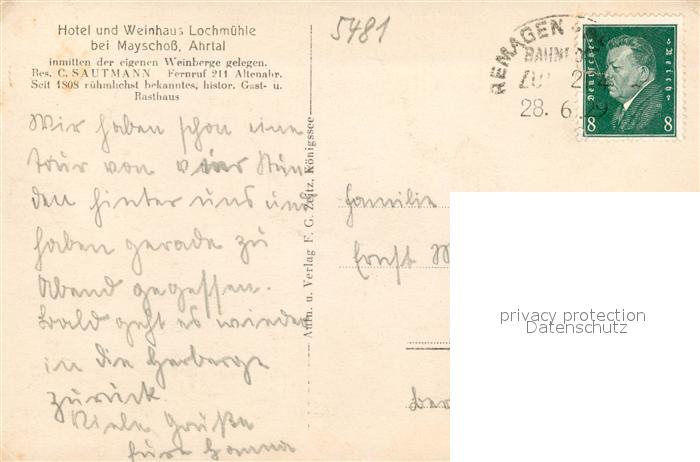 Hotel und Weinhaus Lochmühle
bei Mayschoß, Ahrtal
inmitten der eigenen Weinberge gelegen.
Bes. C. SAUTMANN Fernruf 211 Altenahr.
Seit 1808 rühmlichst bekanntes, histor. Gast- u.
Rasthaus
5481
REMAGEN
BAHNPOST
28. 6. 29
Deutsches Reich
8 8
Wir haben schon eine
Tour von vier Stun
den hinter uns und
haben gerade zu
Abend gegessen.
Bald geht es wieder
in die Herberge
zurück.
Viele Grüße
Eure Hanna
Aufn. u. Verlag F. G. Zeitz, Königssee
Familie
Ernst
privacy protection
Datenschutz